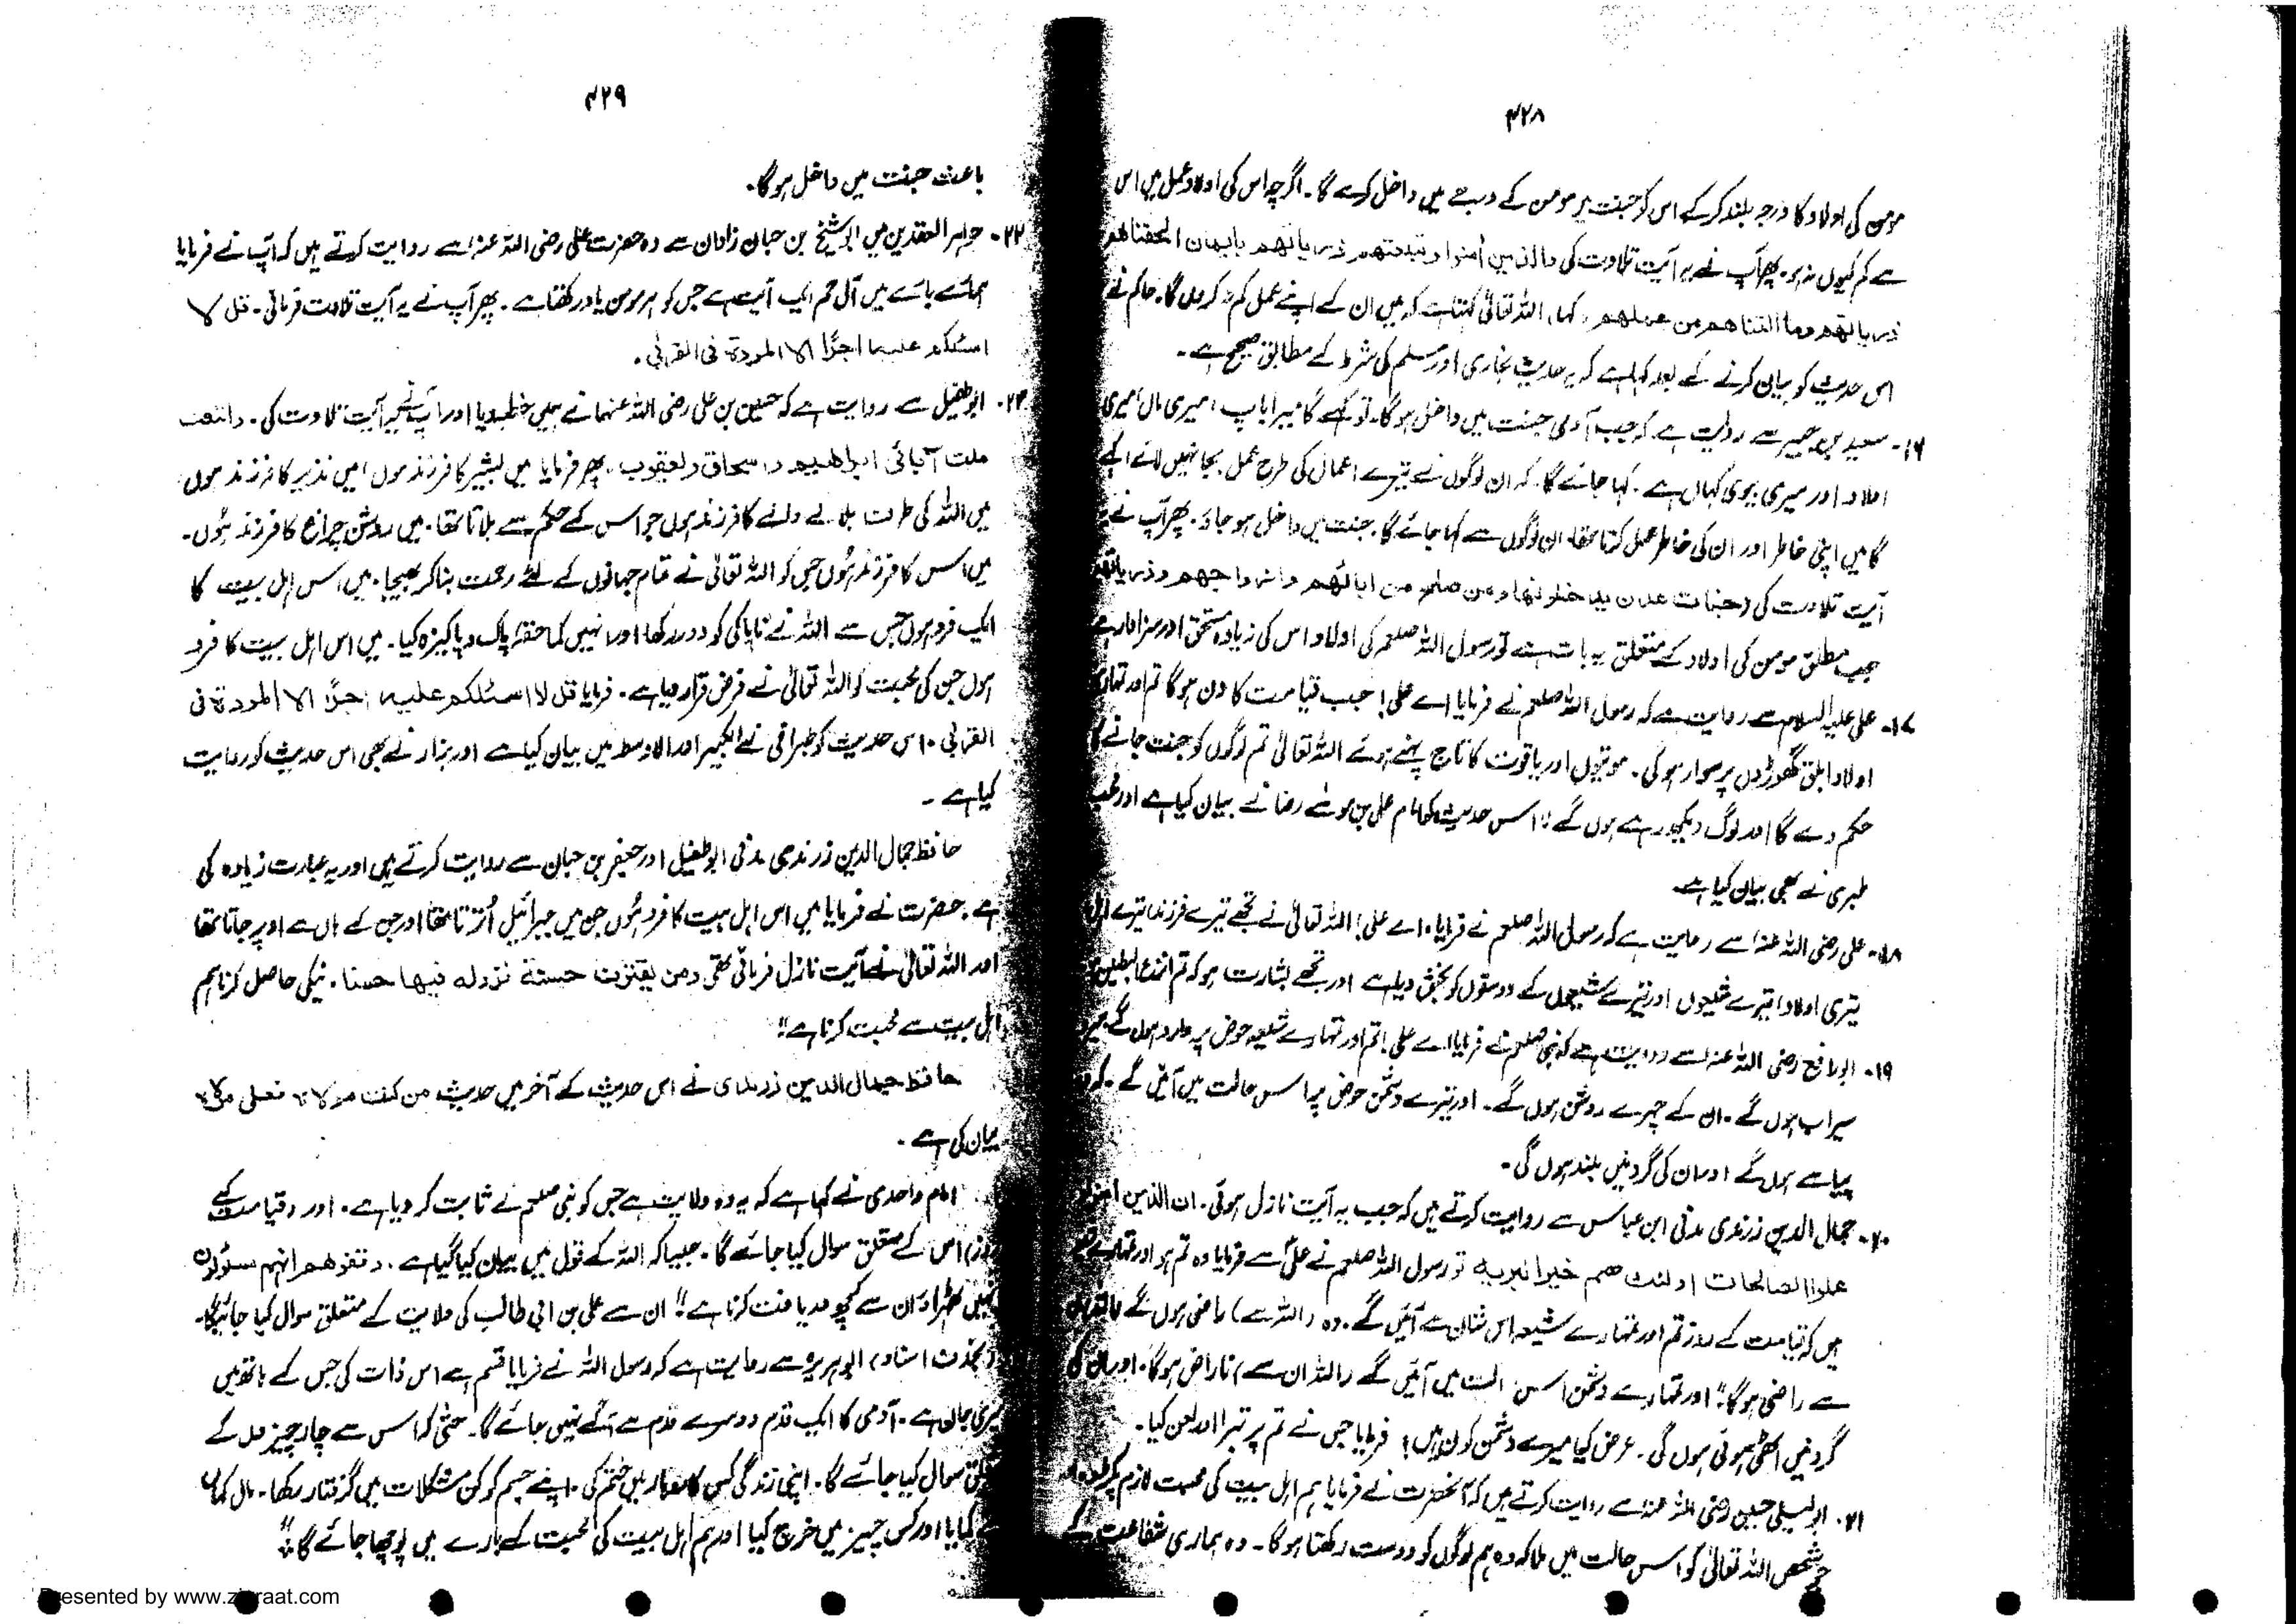 ۴۲۸
مومن کی اولاد کا درجہ بلند کرکے اس کو جنت پر مومن کے درجے میں داخل کرے گا۔ اگرچہ اس کی اولاد عمل میں اس
سے کم کیوں نہ ہو۔ پھر آپ نے یہ آیت تلاوت کی والذین اٰمنوا وتبعتھم ذریاتھم بایمان الحقناھم
ذریاتھم وما التناھم من عملھم، کہا، اللہ تعالیٰ کہتا ہے کہ میں ان کے اپنے عمل کم نہ کروں گا۔ حاکم نے
اس حدیث کو بیان کرنے کے بعد کہا ہے کہ یہ حدیث بخاری اور مسلم کی شرط کے مطابق صحیح ہے۔
۱۶۔ سعید بن جبیر سے روایت ہے کہ جب آدمی جنت میں داخل ہوگا۔ تو کہے گا میرا باپ، میری ماں، میری
اولاد اور میری بیوی کہاں ہے۔ کہا جائے گا۔ کہ ان لوگوں نے تیرے اعمال کی طرح عمل بجا نہیں لائے، کہے
گا میں اپنی خاطر اور ان کی خاطر عمل کرتا تھا۔ ان لوگوں سے کہا جائے گا۔ جنت میں داخل ہو جاؤ۔ پھر آپ نے یہ
آیت تلاوت کی (جنات عدن یدخلونھا ومن صلح من ابائھم وازواجھم وذریاتھم
جب مطلق مومن کی اولاد کے متعلق یہ بات ہے تو رسول اللہ صلعم کی اولاد اس کی زیادہ مستحق اور سزاوار ہے
۱۷۔ علی علیہ السلام سے روایت ہے کہ رسول اللہ صلعم نے فرمایا اے علی! جب قیامت کا دن ہوگا تم اور تمہاری
اولاد ابلق گھوڑوں پر سوار ہو گی۔ موتیوں اور یاقوت کا تاج پہنے ہوئے اللہ تعالیٰ تم لوگوں کو جنت جانے کا
حکم دے گا اور لوگ دیکھ رہے ہوں گے"۔ اس حدیث کو امام علی بن موسٰے رضا نے بیان کیا ہے اور محب
طبری نے بھی بیان کیا ہے۔
۱۸۔ علی رضی اللہ عنہ سے روایت ہے کہ رسول اللہ صلعم نے فرمایا، اے علی! اللہ تعالیٰ نے تجھے تیرے فرزند، تیرے اہل
تیری اولاد، تیرے شیعوں اور تیرے شیعوں کے دوستوں کو بخش دیا ہے اور تجھے بشارت ہو کہ تم انزع البطین ہو
۱۹۔ ابو رافع رضی اللہ عنہ سے روایت ہے کہ نبی صلعم نے فرمایا اے علی! تم اور تمہارے شیعہ حوض پر وارد ہوں گے
سیراب ہوں گے۔ ان کے چہرے روشن ہوں گے۔ اور تیرے دشمن حوض پر اس حالت میں آئیں گے۔ کہ وہ
پیاسے ہوں گے اور ان کی گردنیں بلند ہوں گی۔
۲۰۔ جمال الدین زرندی مدنی ابن عباس سے روایت کرتے ہیں کہ جب یہ آیت نازل ہوئی۔ ان الذین امنو و
عملوا الصالحات اولئک ھم خیر البریہ تو رسول اللہ صلعم نے علیؑ سے فرمایا وہ تم ہو اور تمہارے شیعہ
ہیں کہ قیامت کے روز تم اور تمہارے شیعہ اس شان سے آئیں گے۔ وہ (اللہ سے) راضی ہوں گے اللہ ان
سے راضی ہوگا"۔ اور تمہارے دشمن اس حالت میں آئیں گے (اللہ ان سے) ناراض ہوگا۔ اور ان کی
گردنیں اکٹھی ہوئی ہوں گی۔ عرض کیا میرے دشمن کون ہیں؟ فرمایا جس نے تم پر تبرا اور لعن کیا۔
۲۱۔ ابو لیلی حسین رضی اللہ عنہ سے روایت کرتے ہیں کہ آنحضرت نے فرمایا ہم اہل بیت کی محبت لازم پکڑو
جو شخص اللہ تعالیٰ کو اس حالت میں ملا کہ وہ ہم لوگوں کو دوست رکھتا ہوگا۔ وہ ہماری شفاعت کے
۴۲۹
باعث جنت میں داخل ہوگا۔
۲۲۔ جواہر العقدین میں ابوشیخ بن حبان زاذان سے وہ حضرت علی رضی اللہ عنہ سے روایت کرتے ہیں کہ آپ نے فرمایا
ہمارے بارے میں آل حم ایک آیت ہے جس کو ہر مومن یاد رکھتا ہے۔ پھر آپ نے یہ آیت تلاوت فرمائی۔ قل لا
اسئلکم علیہ اجرًا الا المودۃ فی القربٰی۔
۲۳۔ ابوطفیل سے روایت ہے کہ حسین بن علی رضی اللہ عنہما نے ہمیں خطبہ دیا اور آپ نے یہ آیت تلاوت کی۔ واتبعت
ملت آبائی ابراھیم واسحاق ویعقوب۔ پھر فرمایا میں بشیر کا فرزند ہوں میں نذیر کا فرزند ہوں
میں اللہ کی طرف بلانے والے کا فرزند ہوں جو اس کے حکم سے بلاتا تھا۔ میں روشن چراغ کا فرزند ہوں۔
میں اس کا فرزند ہوں جس کو اللہ تعالیٰ نے تمام جہانوں کے لئے رحمت بنا کر بھیجا۔ میں اس اہل بیت کا
ایک فرد ہوں جس سے اللہ نے ناپاکی کو دور رکھا اور انہیں کما حقہ پاک و پاکیزہ کیا۔ میں اس اہل بیت کا فرد
ہوں جن کی محبت کو اللہ تعالیٰ نے فرض قرار دیا ہے۔ فرمایا قل لا اسئلکم علیہ اجرًا الا المودۃ فی
القربٰی۔ اس حدیث کو طبرانی نے الکبیر اور الاوسط میں بیان کیا ہے اور بزار نے بھی اس حدیث کو روایت
کیا ہے۔
حافظ جمال الدین زرندی مدنی ابوطفیل اور جعفر بن حبان سے روایت کرتے ہیں اور یہ عبارت زیادہ کی
ہے۔ حضرت نے فرمایا میں اس اہل بیت کا فرد ہوں جن میں جبرائیل اُترتا تھا اور جن کے ہاں سے اوپر جاتا تھا
اور اللہ تعالیٰ نے آیت نازل فرمائی تھی ومن یقترف حسنۃ نزدلہ فیھا حسنا۔ نیکی حاصل کرنا ہم
اہل بیت سے محبت کرنا ہے"
حافظ جمال الدین زرندی نے اس حدیث کے آخر میں حدیث من کنت مولاہ فعلی مولاہ
بیان کی ہے۔
امام واحدی نے کہا ہے کہ یہ وہ ولایت ہے جس کو نبی صلعم نے ثابت کر دیا ہے۔ اور (قیامت کے
روز) اس کے متعلق سوال کیا جائے گا۔ جیسا کہ اللہ کے قول میں بیان کیا گیا ہے۔ وقفوھم انہم مسئولون
انہیں ٹھہراؤ ان سے کچھ دریافت کرنا ہے" ان سے علی بن ابی طالب کی ولایت کے متعلق سوال کیا جائیگا۔
(بحذف اسناد) ابو ہریرہ سے روایت ہے کہ رسول اللہ نے فرمایا قسم ہے اس ذات کی جس کے ہاتھ میں
میری جان ہے۔ آدمی کا ایک قدم دوسرے قدم سے آگے نہیں جائے گا۔ حتیٰ کہ اس سے چار چیزوں کے
متعلق سوال کیا جائے گا۔ اپنی زندگی کس میں ختم کی۔ اپنے جسم کو کن مشکلات میں گرفتار رکھا۔ مال کہاں
سے کمایا اور کس چیز میں خرچ کیا اور ہم اہل بیت کی محبت کے بارے میں پوچھا جائے گا"
Presented by www.ziaraat.com